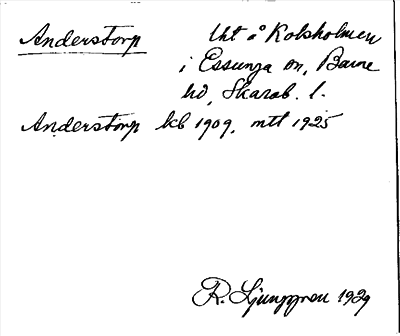 Anderstorp lht å Kolsholmen
i Essunga sn, Barne
hd, Skarab. l.
Anderstorp kb 1909, mtl 1925
R. Ljunggren 1929